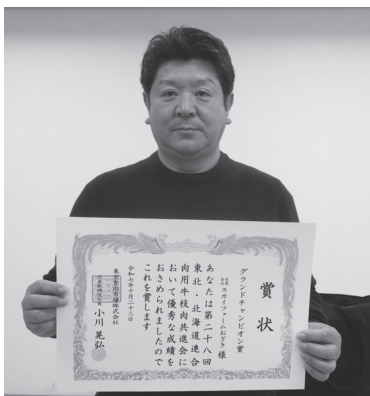 賞状
グランドチャンピオン賞
スカイファームおざき 様
あなたは第二十八回
東北・北海道連合
肉用牛枝肉共進会に
おいて優秀な成績を
おさめられましたので
これを賞します
令和七年十月二十三日
東京食肉市場株式会社
小川晃弘